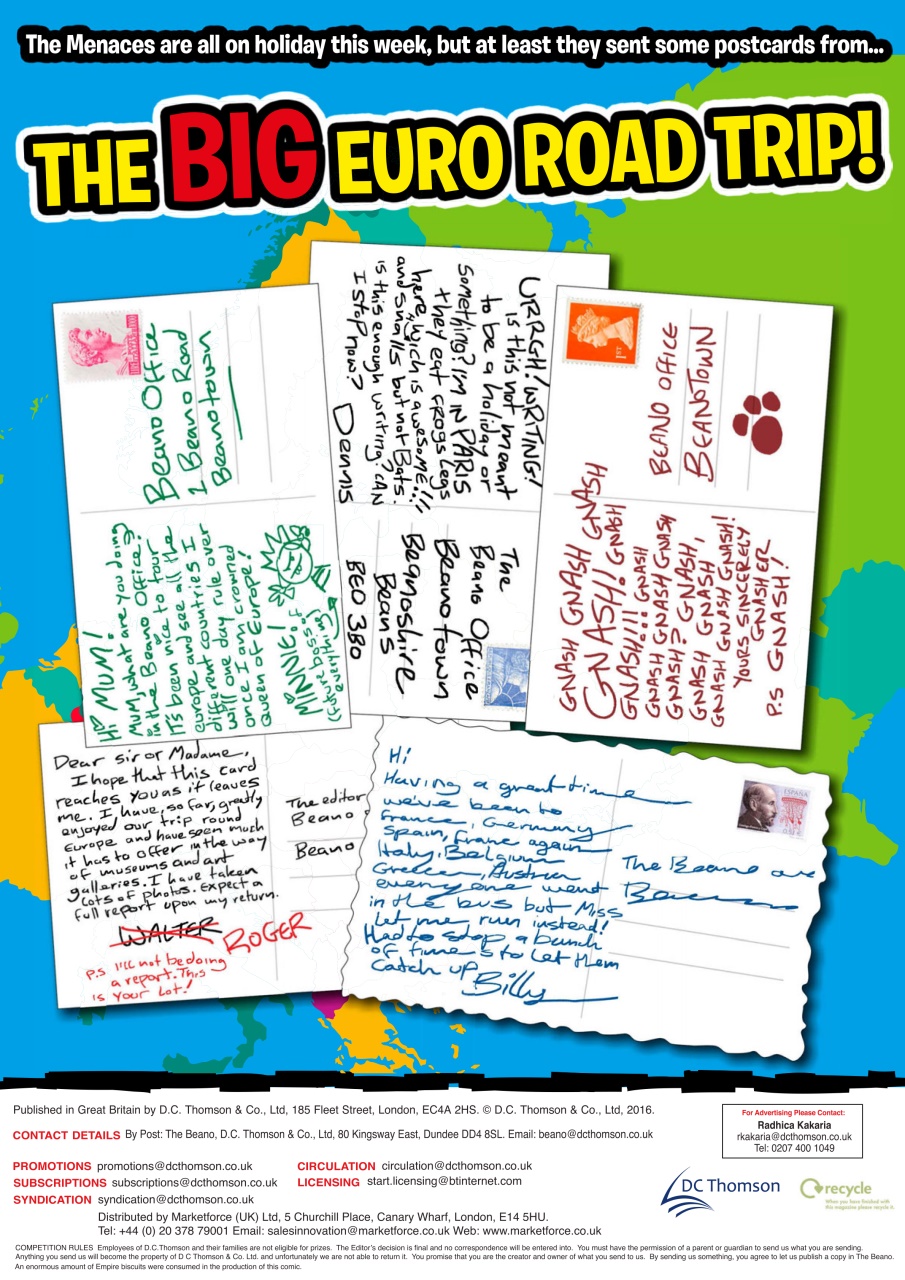 The Menaces are all on holiday this week, but at least they sent some postcards from...
THE BIG EURO ROAD TRIP!
Beano Office
1 Beano Road
Beanotown
Hi MUM!
Mum, what are you doing
in the Beano Office?
It's been nice to tour
europe and see all the
different countries I
will one day rule over
once I am crowned
Queen of Europe!
MINNIE!
(future boss of
everything)
URRGH! WRITING!
is this not meant
to be a holiday or
something? IM IN PARIS
they eat FROGS Legs
here, which is awesome!!!
and snails but not Bats.
is this enough writing? CAN
I stop now?
Dennis
The
Beano Office
Beanotown
Beanoshire
Beans
BEO 380
1ST
BEANO OFFICE
BEANOTOWN
GNASH GNASH GNASH
GNASH!! GNASH
GNASH!!! GNASH
GNASH GNASH GNASH
GNASH? GNASH,
GNASH GNASH,
GNASH GNASH GNASH!
YOURS SINCERELY
GNASHER
P.S GNASH!
Dear sir or Madame,
I hope that this card
reaches you as it leaves
me. I have, so far, greatly
enjoyed our trip round
Europe and have seen much
it has to offer in the way
of museums and art
galleries. I have taken
lots of photos. Expect a
full report upon my return.
WALTER ROGER
P.S I'll not be doing
a report. This
is your lot!
The editor
Beano
Beano
Hi
Having a great time
we've been to
France, Germany
Spain, France again
Italy, Belgium
Greece, Austria
everyone went
in the bus but Miss
let me run instead!
Had to stop a bunch
of times to let them
catch up
Billy
ESPAÑA
The Beano
Published in Great Britain by D.C. Thomson & Co., Ltd, 185 Fleet Street, London, EC4A 2HS. © D.C. Thomson & Co., Ltd, 2016.
CONTACT DETAILS By Post: The Beano, D.C. Thomson & Co., Ltd, 80 Kingsway East, Dundee DD4 8SL. Email: beano@dcthomson.co.uk
PROMOTIONS promotions@dcthomson.co.uk
CIRCULATION circulation@dcthomson.co.uk
SUBSCRIPTIONS subscriptions@dcthomson.co.uk
LICENSING start.licensing@btinternet.com
SYNDICATION syndication@dcthomson.co.uk
Distributed by Marketforce (UK) Ltd, 5 Churchill Place, Canary Wharf, London, E14 5HU.
Tel: +44 (0) 20 378 79001 Email: salesinnovation@marketforce.co.uk Web: www.marketforce.co.uk
For Advertising Please Contact:
Radhica Kakaria
rkakaria@dcthomson.co.uk
Tel: 0207 400 1049
DC Thomson
recycle
When you have finished with
this magazine please recycle it.
COMPETITION RULES Employees of D.C.Thomson and their families are not eligible for prizes. The Editor's decision is final and no correspondence will be entered into. You must have the permission of a parent or guardian to send us what you are sending.
Anything you send us will become the property of D C Thomson & Co. Ltd. and unfortunately we are not able to return it. You promise that you are the creator and owner of what you send to us. By sending us something, you agree to let us publish a copy in The Beano.
An enormous amount of Empire biscuits were consumed in the production of this comic.